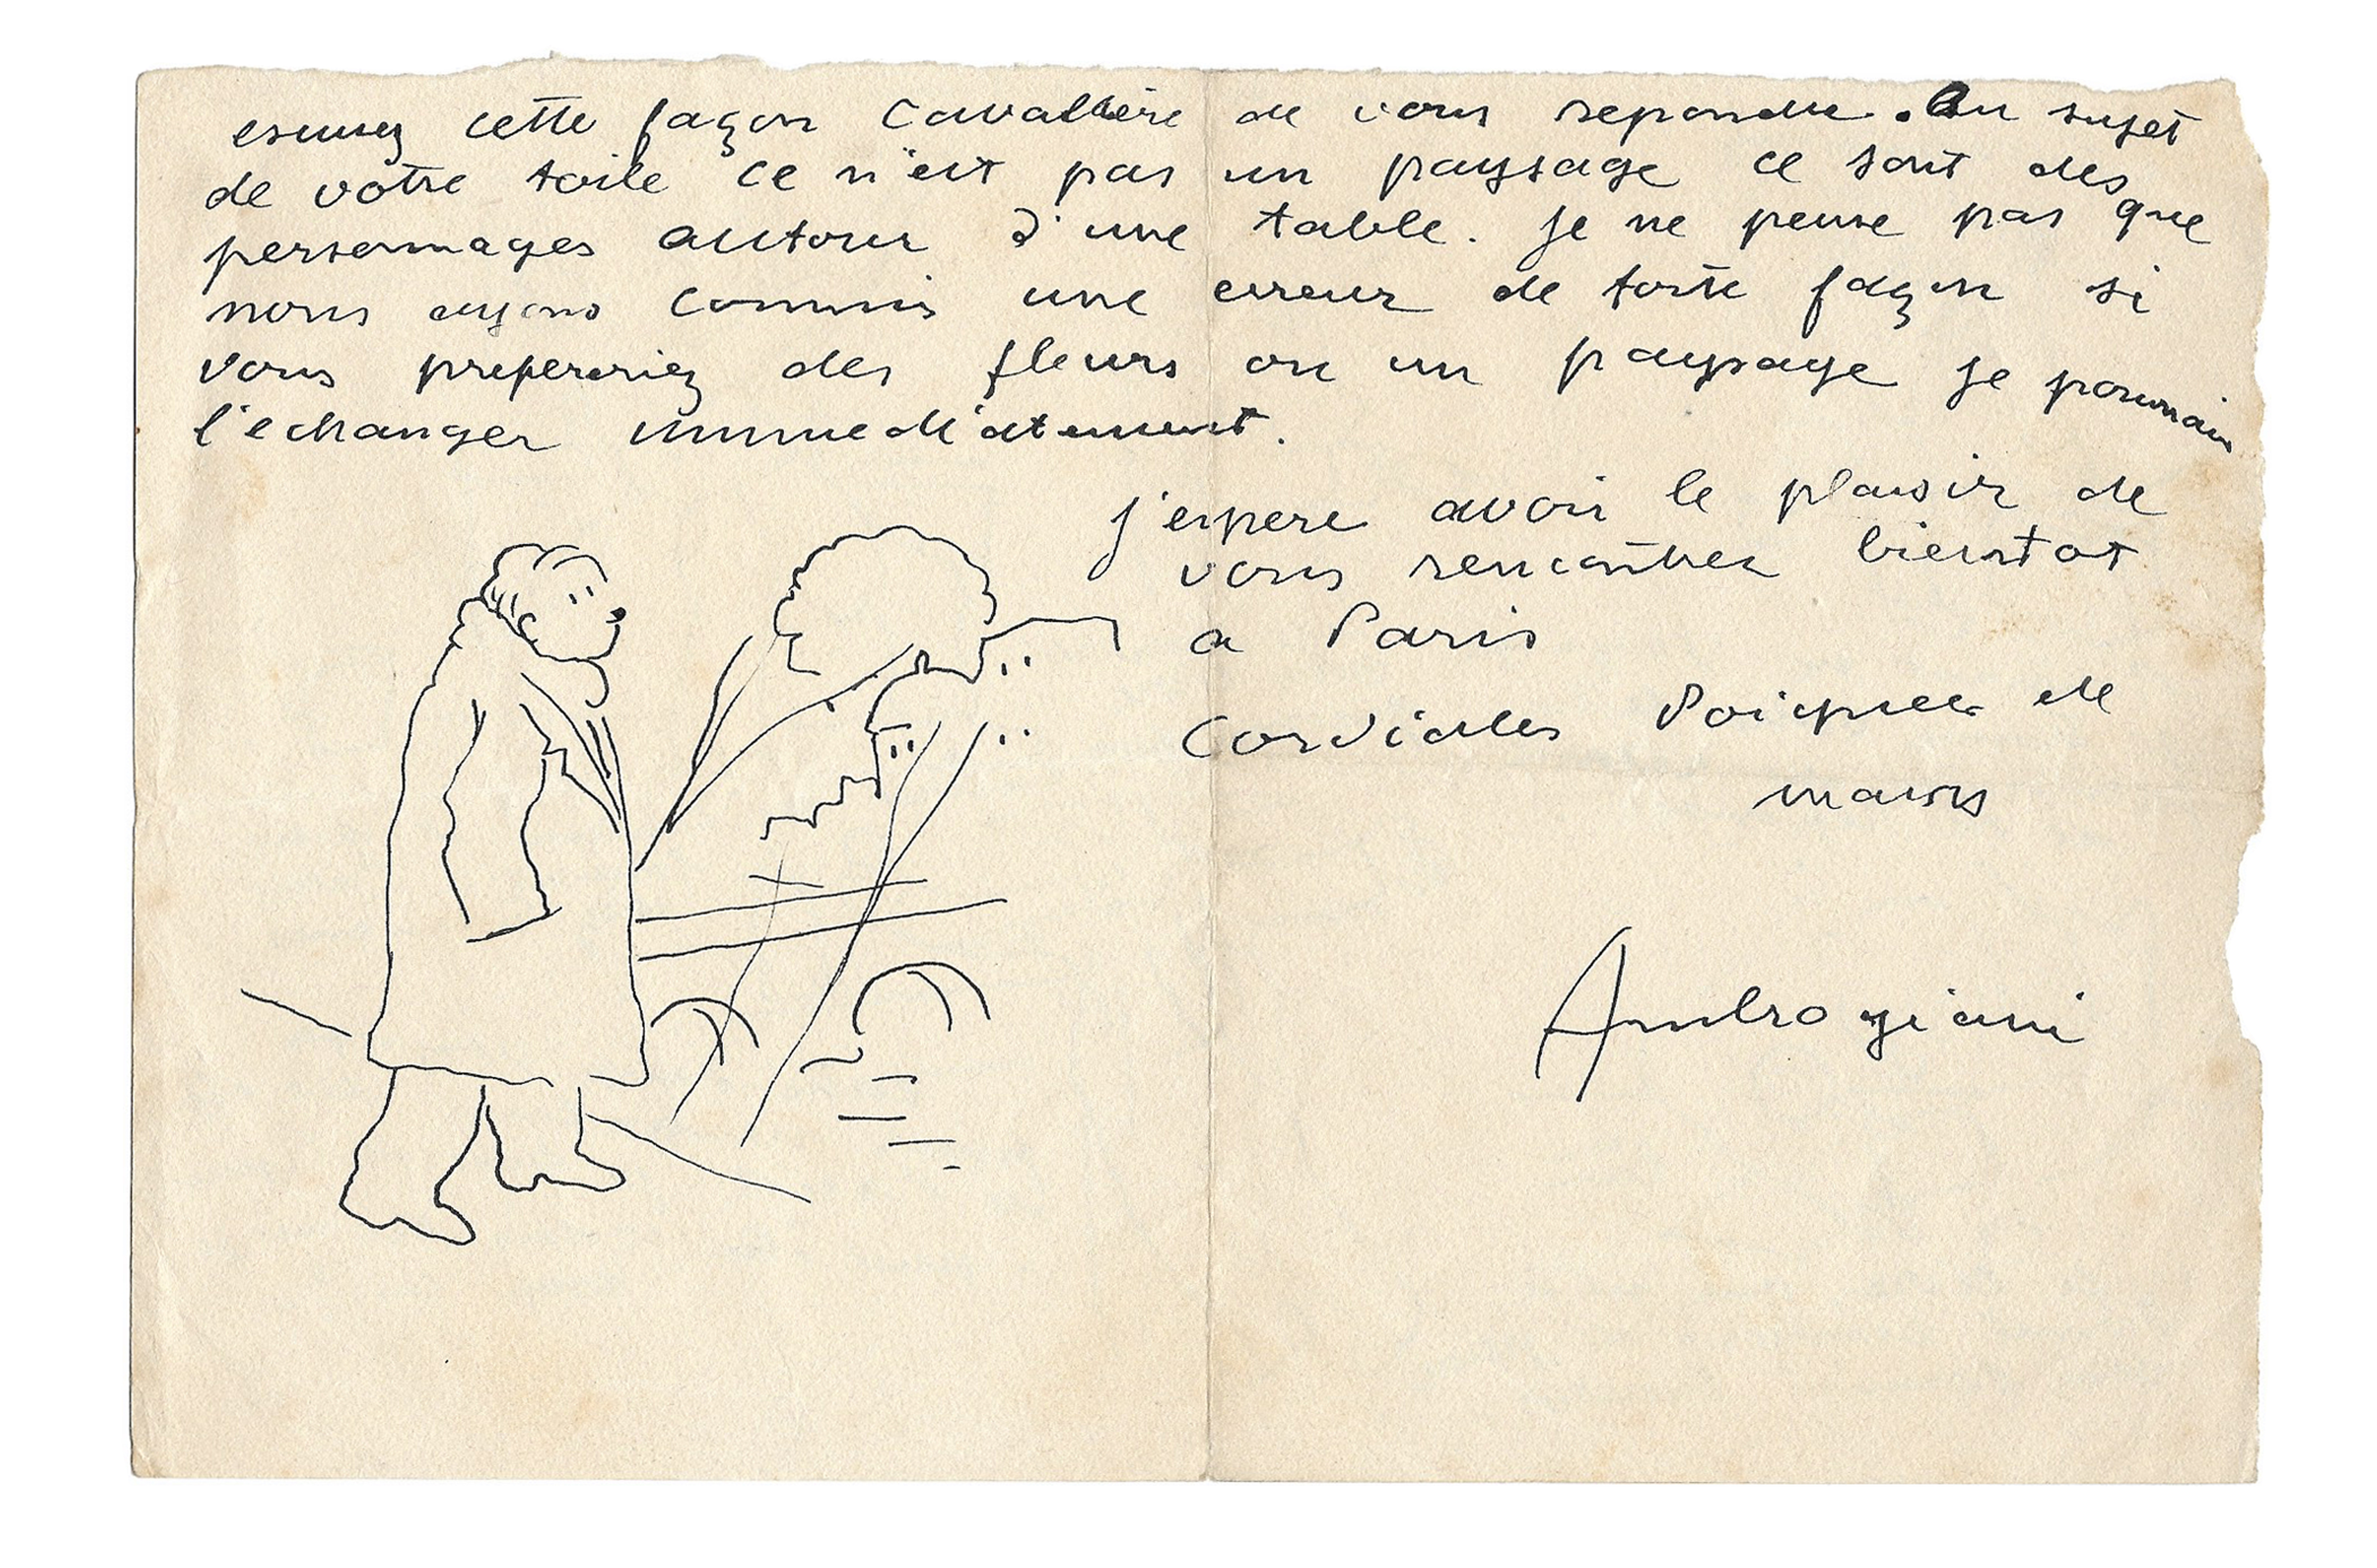 esuuez cette façon Cavallière de vous repondre. Au sujet
de votre toile ce n'est pas un paysage ce sont des
personnages autour d'une table. je ne pense pas que
nous ayons commis une erreur de toute façon si
vous prefereriez des fleurs ou un paysage je pourrais
l'echanger immediatement.
j'espere avoir le plaisir de
vous rencontrer bientot
a Paris
Cordiales Poignees de
mains
Ambrogiani